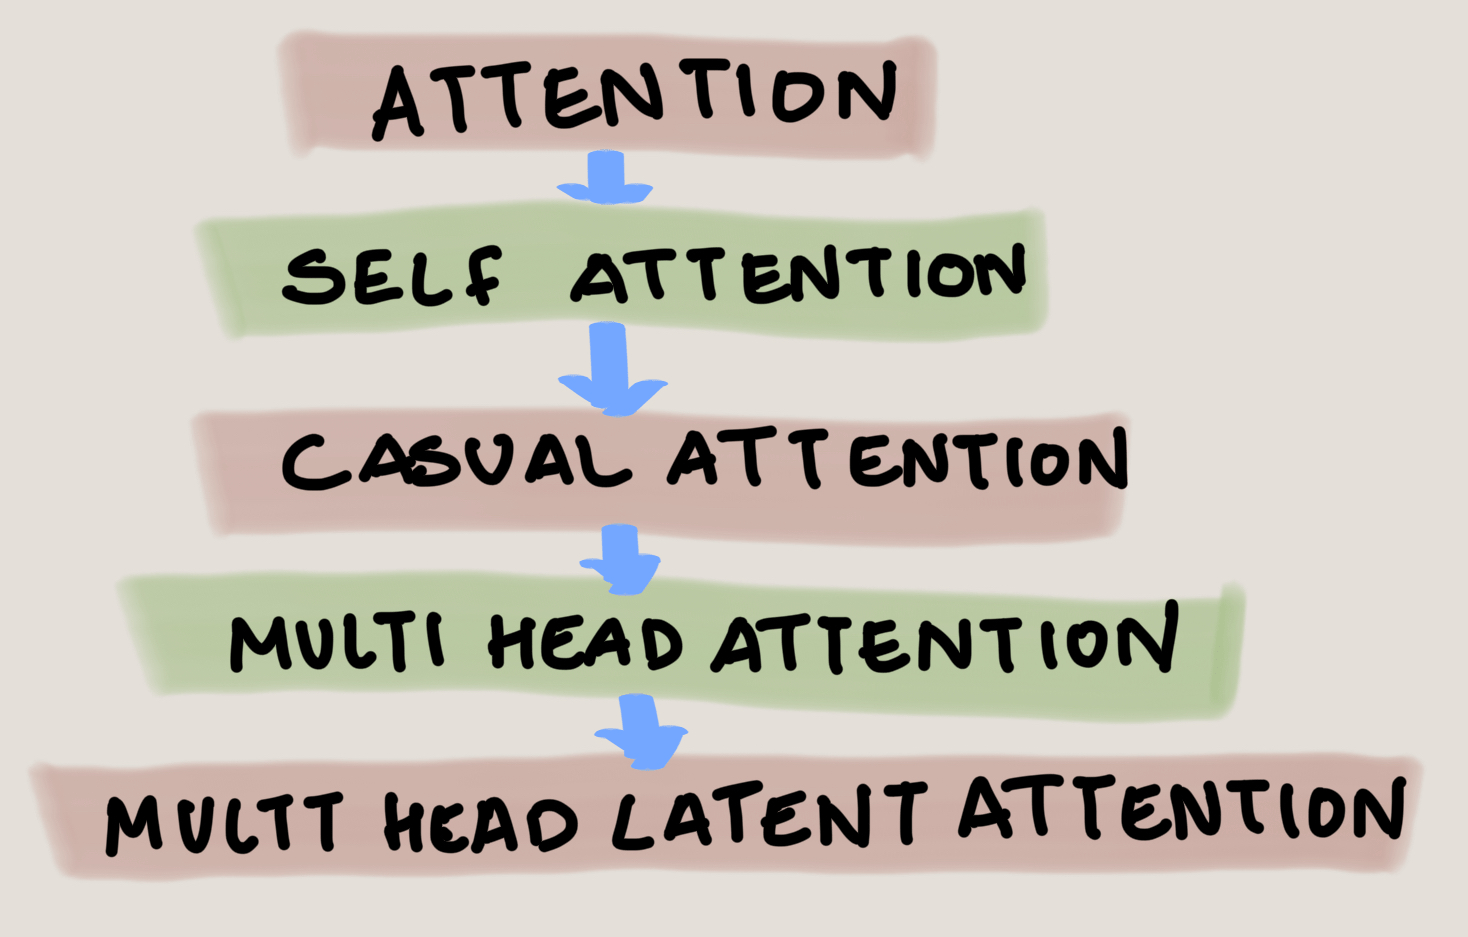 ATTENTION
SELF ATTENTION
CASUAL ATTENTION
MULTI HEAD ATTENTION
MULTT HEAD LATENT ATTENTION